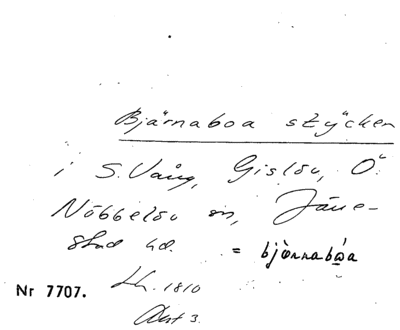 Bjärnaboa stycken
i S. Vång, Gislöv, Ö.
Nöbbelöv sn, Järre-
stad hd. = bjὰrnabὼa
Nr 7707. Lh. 1810
Akt 3.